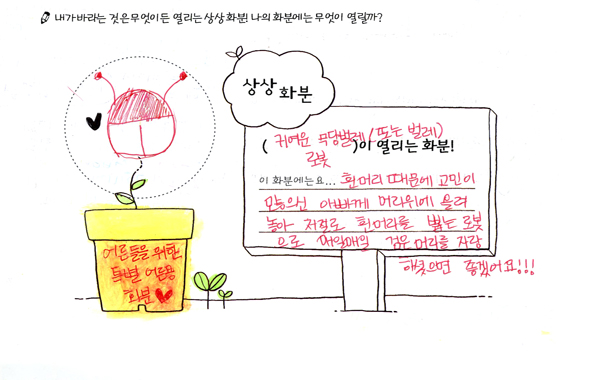 내가 바라는 것은 무엇이든 열리는 상상화분! 나의 화분에는 무엇이 열릴까?
상상 화분
( 귀여운 무당벌레 (또는 벌레)
로봇 )이 열리는 화분!
이 화분에는요... 흰머리 때문에 고민이
많으신 아빠께 머리위에 올려
놓아 저절로 흰머리를 뽑는 로봇
으로 매일매일 검은 머리를 자랑
하셨으면 좋겠어요!!!
어른들을 위한,
특별 어른용
화분